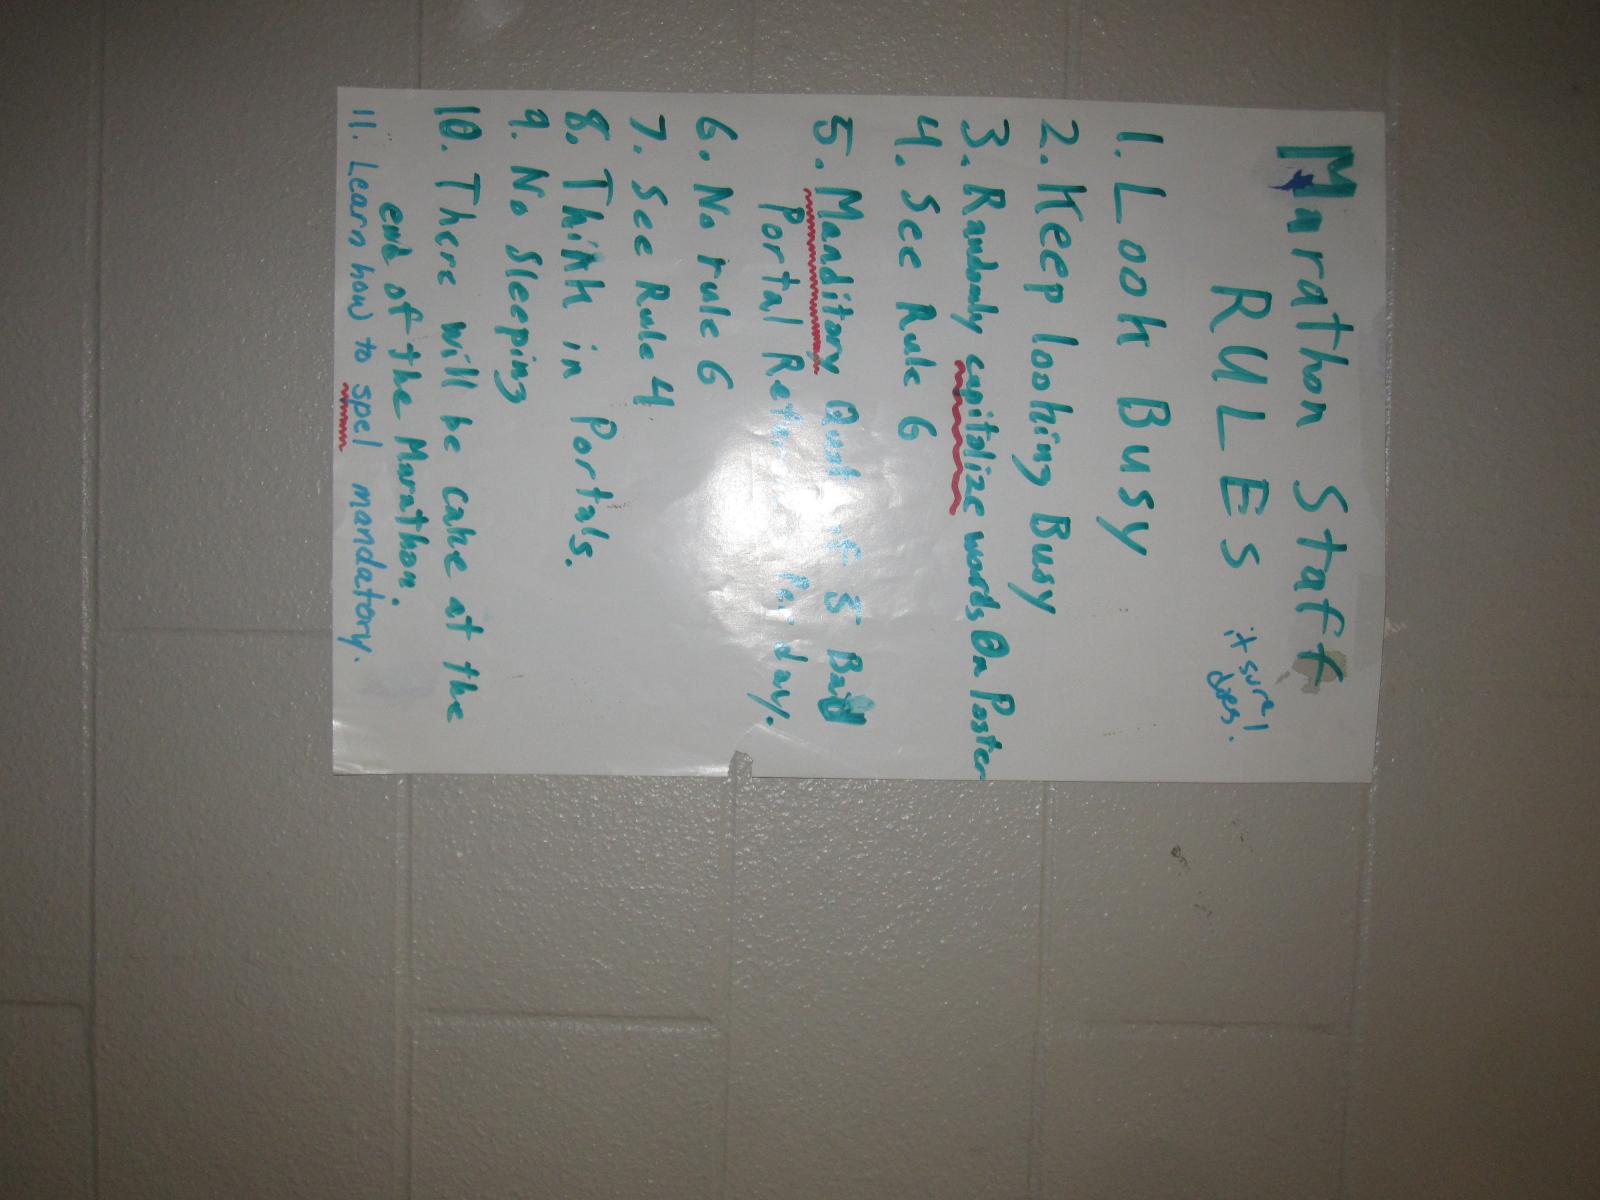 Marathon Staff
RULES
it sure
does!
1. Look Busy
2. Keep looking Busy
3. Randomly capitolize words On Poster
4. See Rule 6
5. Manditory Quota of 5 Bad
Portal References Per day.
6. No rule 6
7. See Rule 4
8. Think in Portals.
9. No Sleeping
10. There will be cake at the
end of the Marathon.
11. Learn how to spel mandatory.